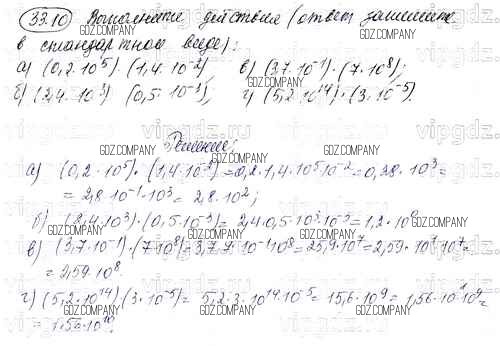 33.10 Выполните действия (ответ запишите
в стандартном виде):
а) (0,2·10⁵)·(1,4·10⁻²), в) (3,7·10⁻¹)·(7·10⁸);
б) (2,4·10³) (0,5·10⁻³), г) (5,2·10¹⁴)·(3·10⁻⁵).
Решение:
а) (0,2·10⁵)·(1,4·10⁻²)=0,2·1,4·10⁵10⁻²=0,28·10³=
=2,8·10⁻¹·10³=2,8·10²;
б) (2,4·10³)·(0,5·10⁻³)=2,4·0,5·10³·10⁻³=1,2·10⁰
в) (3,7·10⁻¹)·(7·10⁸)=3,7·7·10⁻¹·10⁸=25,9·10⁷=2,59·10¹·10⁷=
=2,59·10⁸.
г) (5,2·10¹⁴)·(3·10⁻⁵)=5,2·3·10¹⁴·10⁻⁵=15,6·10⁹=1,56·10¹·10⁹=
=1,56·10¹⁰.